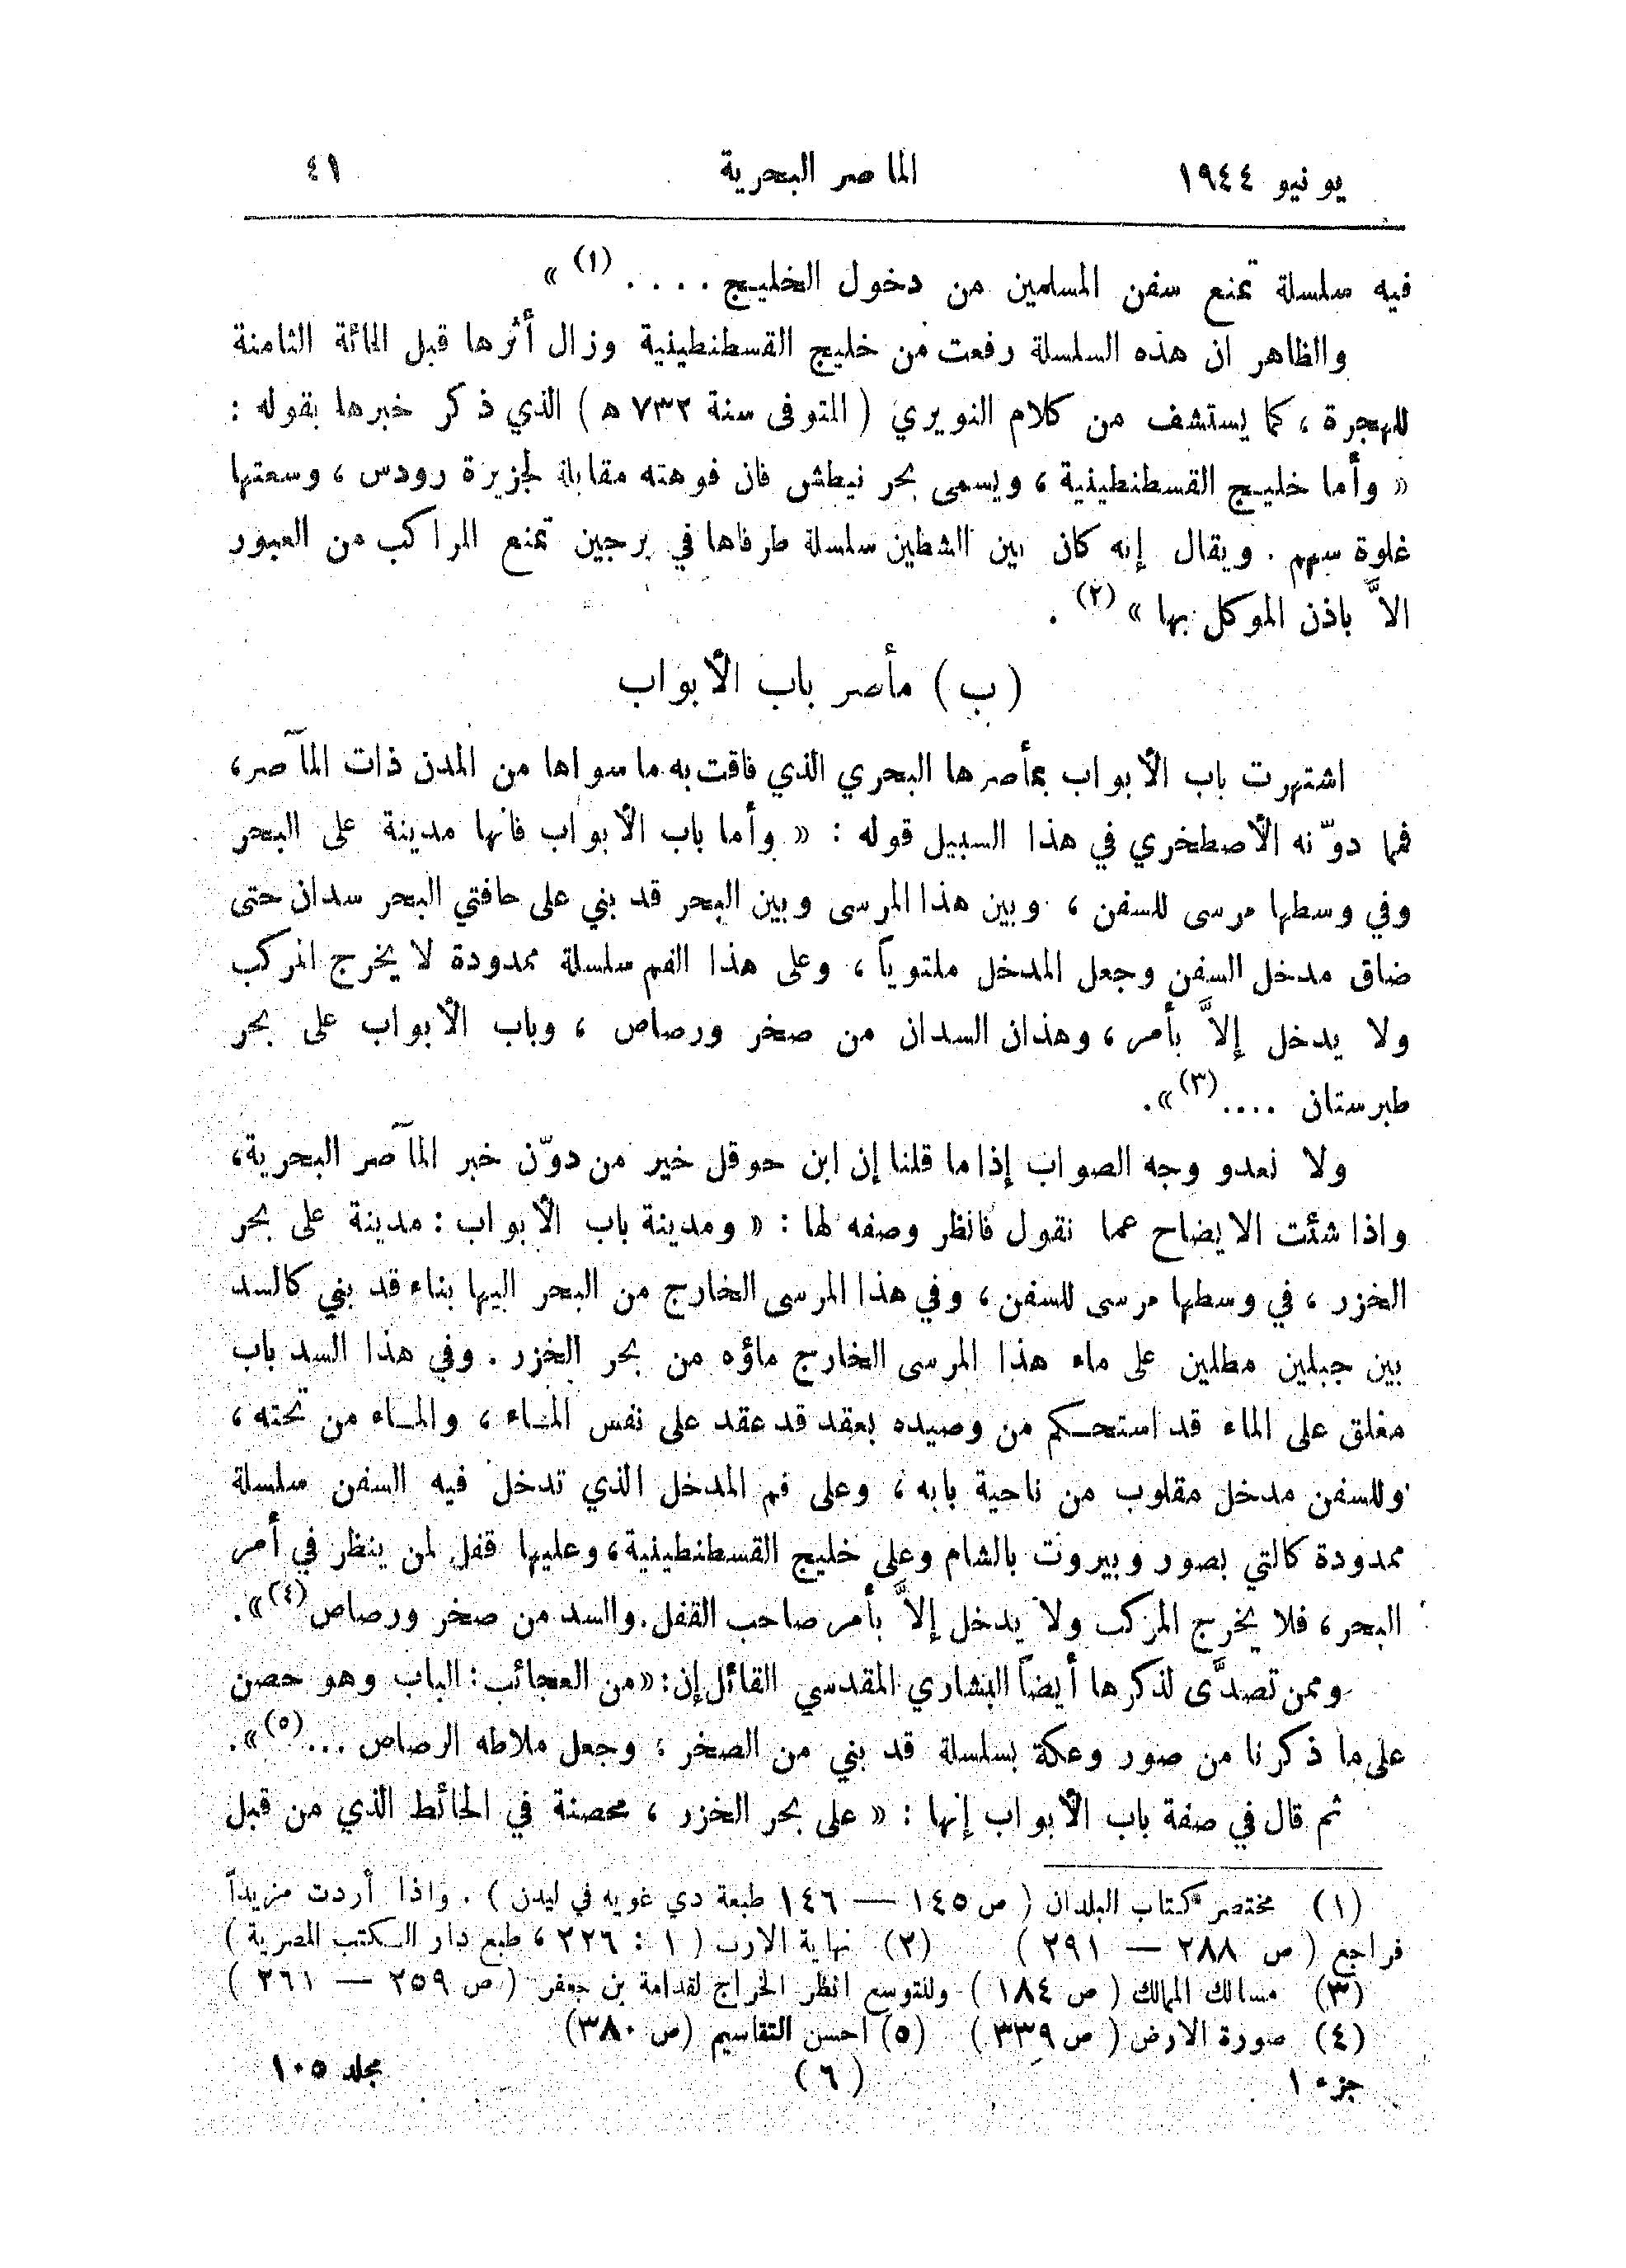 يونيو ١٩٤٤ المآصر البحرية ٤١
فيه سلسلة تمنع سفن المسلمين من دخول الخليج . . . . (١) »
والظاهر ان هذه السلسلة رفعت من خليج القسطنطينية وزال أثرها قبل المائة الثامنة
للهجرة ، كما يستشف من كلام النويري ( المتوفى سنة ٧٣٢ ھ ) الذي ذكر خبرها بقوله :
« وأما خليج القسطنطينية ، ويسمى بحر نيطش فان فوهته مقابلة لجزيرة رودس ، وسعتها
غلوة سهم . ويقال إنه كان بين الشطين سلسلة طرفاها في برجين تمنع المراكب من العبور
الاَّ باذن الموكل بها » (٢) .
( ب ) مأصر باب الأبواب
اشتهرت باب الأبواب بمأصرها البحري الذي فاقت به ما سواها من المدن ذات المآصر ،
فما دوّنه الأصطخري في هذا السبيل قوله : « وأما باب الأبواب فانها مدينة على البحر
وفي وسطها مرسى للسفن ، وبين هذا المرسى وبين البحر قد بني على حافتي البحر سدان حتى
ضاق مدخل السفن وجعل المدخل ملتوياً ، وعلى هذا الفم سلسلة ممدودة لا يخرج المركب
ولا يدخل إلاَّ بأمر ، وهذان السدان من صخر ورصاص ، وباب الأبواب على بحر
طبرستان . . . . (٣) ».
ولا نعدو وجه الصواب إذا ما قلنا إن ابن حوقل خير من دوّن خبر المآصر البحرية ،
واذا شئت الايضاح عما نقول فانظر وصفه لها : « ومدينة باب الأبواب : مدينة على بحر
الخزر ، في وسطها مرسى للسفن ، وفي هذا المرسى الخارج من البحر اليها بناء قد بني كالسد
بين جبلين مطلين على ماء هذا المرسى الخارج ماؤه من بحر الخزر . وفي هذا السد باب
مغلق على الماء قد استحكم من وصيده بعقد قد عقد على نفس الماء ، والماء من تحته ،
وللسفن مدخل مقلوب من ناحية بابه ، وعلى فم المدخل الذي تدخل فيه السفن سلسلة
ممدودة كالتي بصور وبيروت بالشام وعلى خليج القسطنطينية ، وعليها قفل لمن ينظر في أمر
البحر ، فلا يخرج المركب ولا يدخل إلاَّ بأمر صاحب القفل . والسد من صخر ورصاص (٤) ».
وممن تصدَّى لذكرها أيضاً البشاري المقدسي القائل إن : « من العجائب : الباب وهو حصن
على ما ذكرنا من صور وعكة بسلسلة قد بني من الصخر ، وجعل ملاطه الرصاص . . . (٥) ».
ثم قال في صفة باب الأبواب إنها : « على بحر الخزر ، محصنة في الحائط الذي من قبل
(١) مختصر كتاب البلدان ( ص ١٤٥ — ١٤٦ طبعة دي غويه في ليدن ) . واذا أردت مزيداً
فراجع ( ص ٢٨٨ — ٢٩١ ) (٢) نهاية الارب ( ١ : ٢٢٦ ، طبع دار الكتب المصرية )
(٣) مسالك الممالك ( ص ١٨٤ ) وللتوسع انظر الخراج لقدامة بن جعفر ( ص ٢٥٩ — ٢٦١ )
(٤) صورة الارض ( ص ٣٣٩ ) (٥) احسن التقاسيم (ص ٣٨٠)
جزء ١ (٦) مجلد ١٠٥